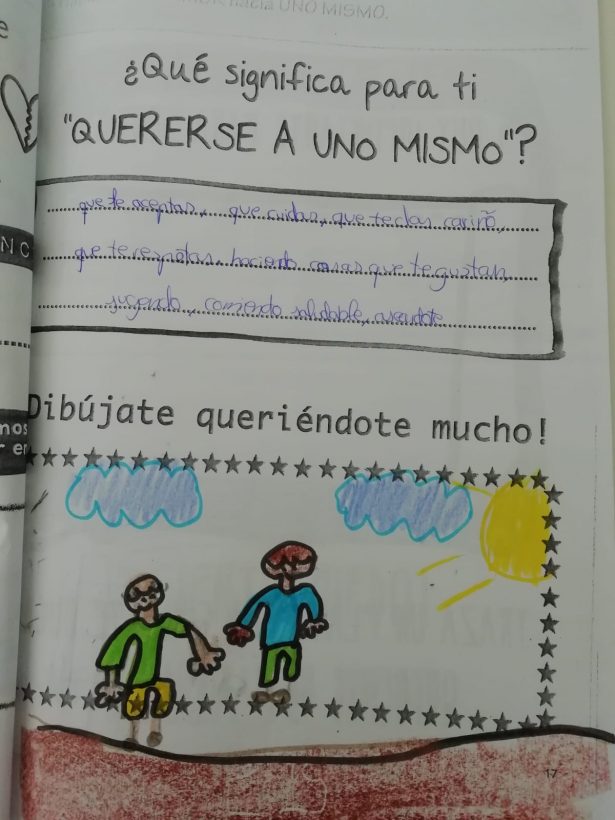 hacia UNO MISMO.
¿Qué significa para ti
"QUERERSE A UNO MISMO"?
que te aceptas, que cuidas, que te das cariño,
que te respetas, haciendo cosas que te gustan,
jugando, comiendo saludable,
Dibújate queriéndote mucho!
nos
er en
17